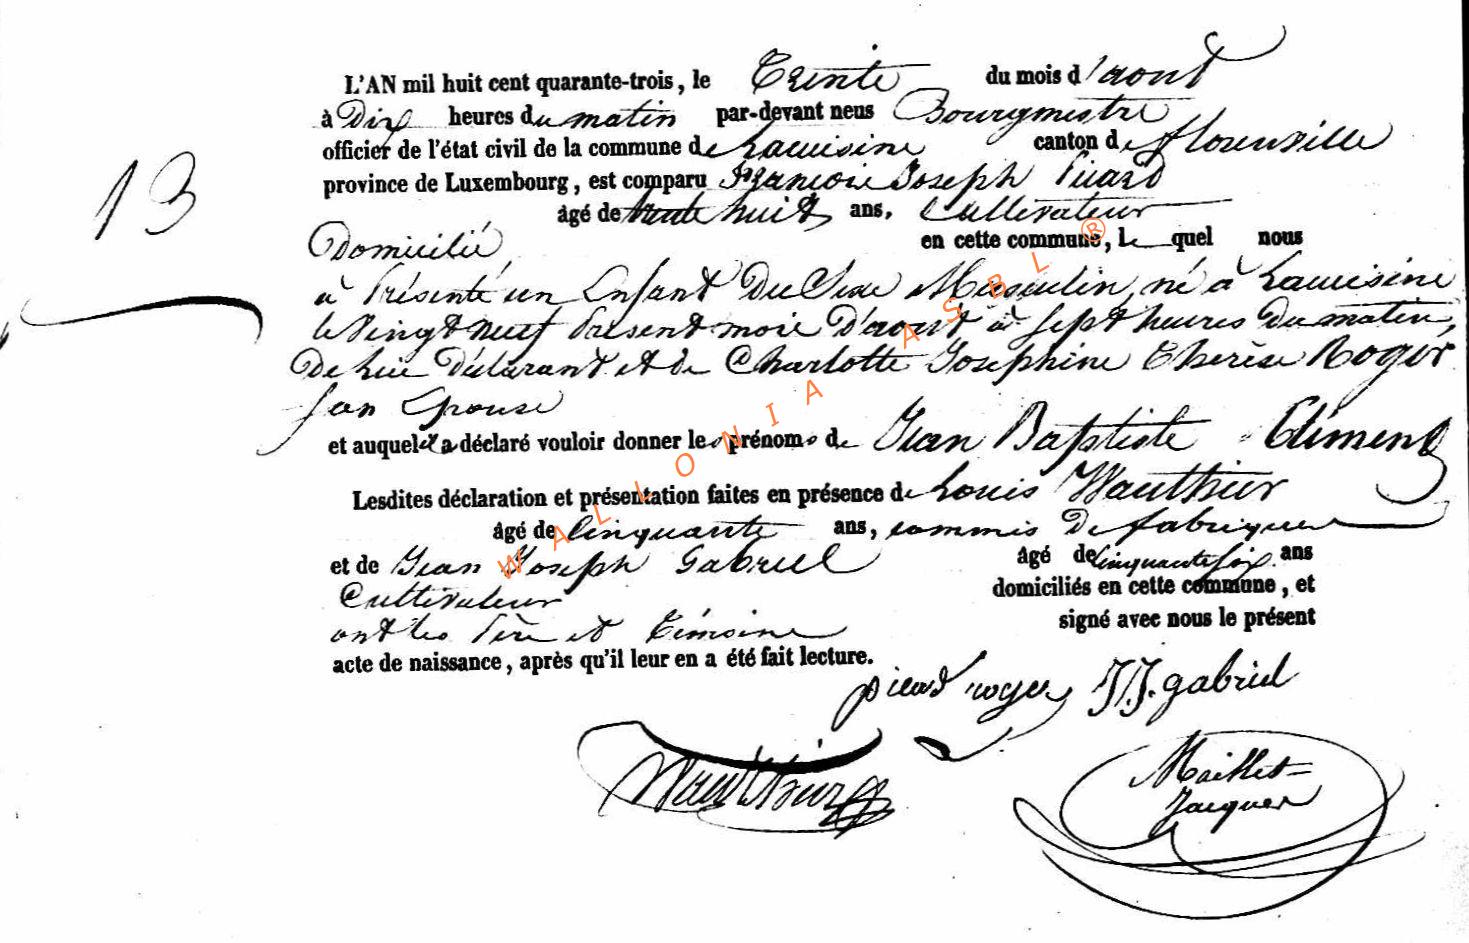 L'AN mil huit cent quarante-trois, le Trente du mois d'aout
à Dix heures du matin par-devant nous Bourgmestre
officier de l'état civil de la commune de Lacuisine canton de florenville
13
province de Luxembourg, est comparu françois Joseph Picard
âgé de trente huit ans, Cultivateur
Domicilié en cette commune, le quel nous
à Présenté un Enfant Du Sexe Masculin, né à Lacuisine
le Vingt neuf Présent mois D'aout à Sept heures Du matin,
De lui Déclarant et de Charlotte Josephine Therèse Roger
son Epouse
et auquel il a déclaré vouloir donner les prénoms de Jean Baptiste Climent
Lesdites déclaration et présentation faites en présence de Louis Wauthier
âgé de Cinquante ans, commis De fabrique
et de Jean Joseph Gabriel âgé de Cinquante six ans
Cultivateur domiciliés en cette commune, et
ont les Père et Témoins signé avec nous le présent
acte de naissance, après qu'il leur en a été fait lecture.
picard roger JJ. gabriel
Wauthier
Maillet=
Jacques
WALLONIA ASBL ®